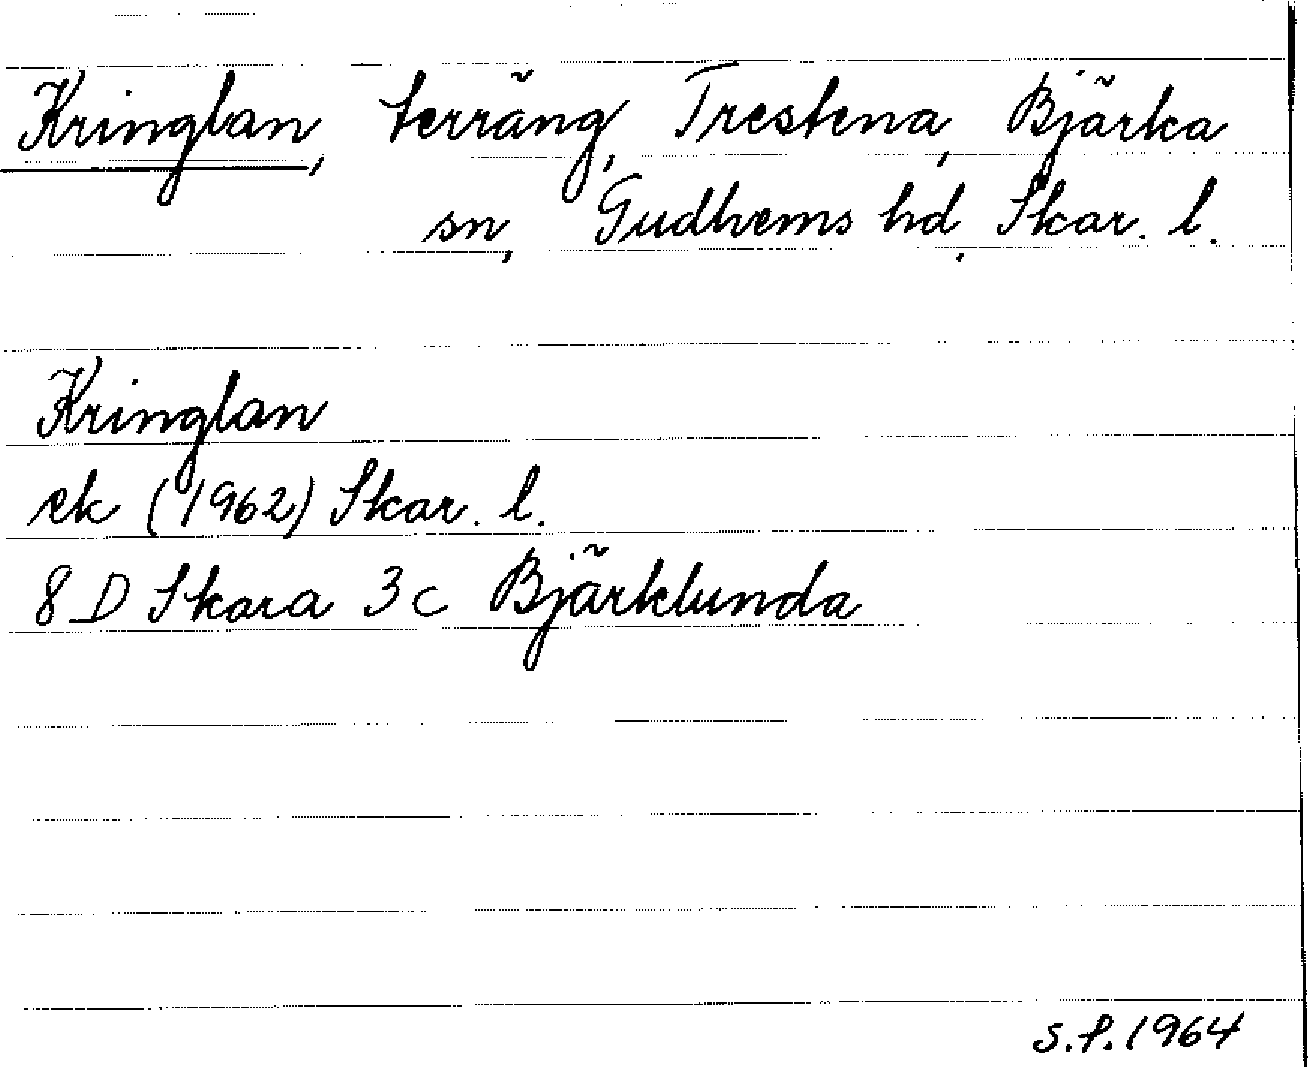 Kringlan, terräng, Trestena, Bjärka
sn, Gudhems hd, Skar. l.
Kringlan
ek (1962) Skar. l.
8 D Skara 3c Bjärklunda
S.P. 1964